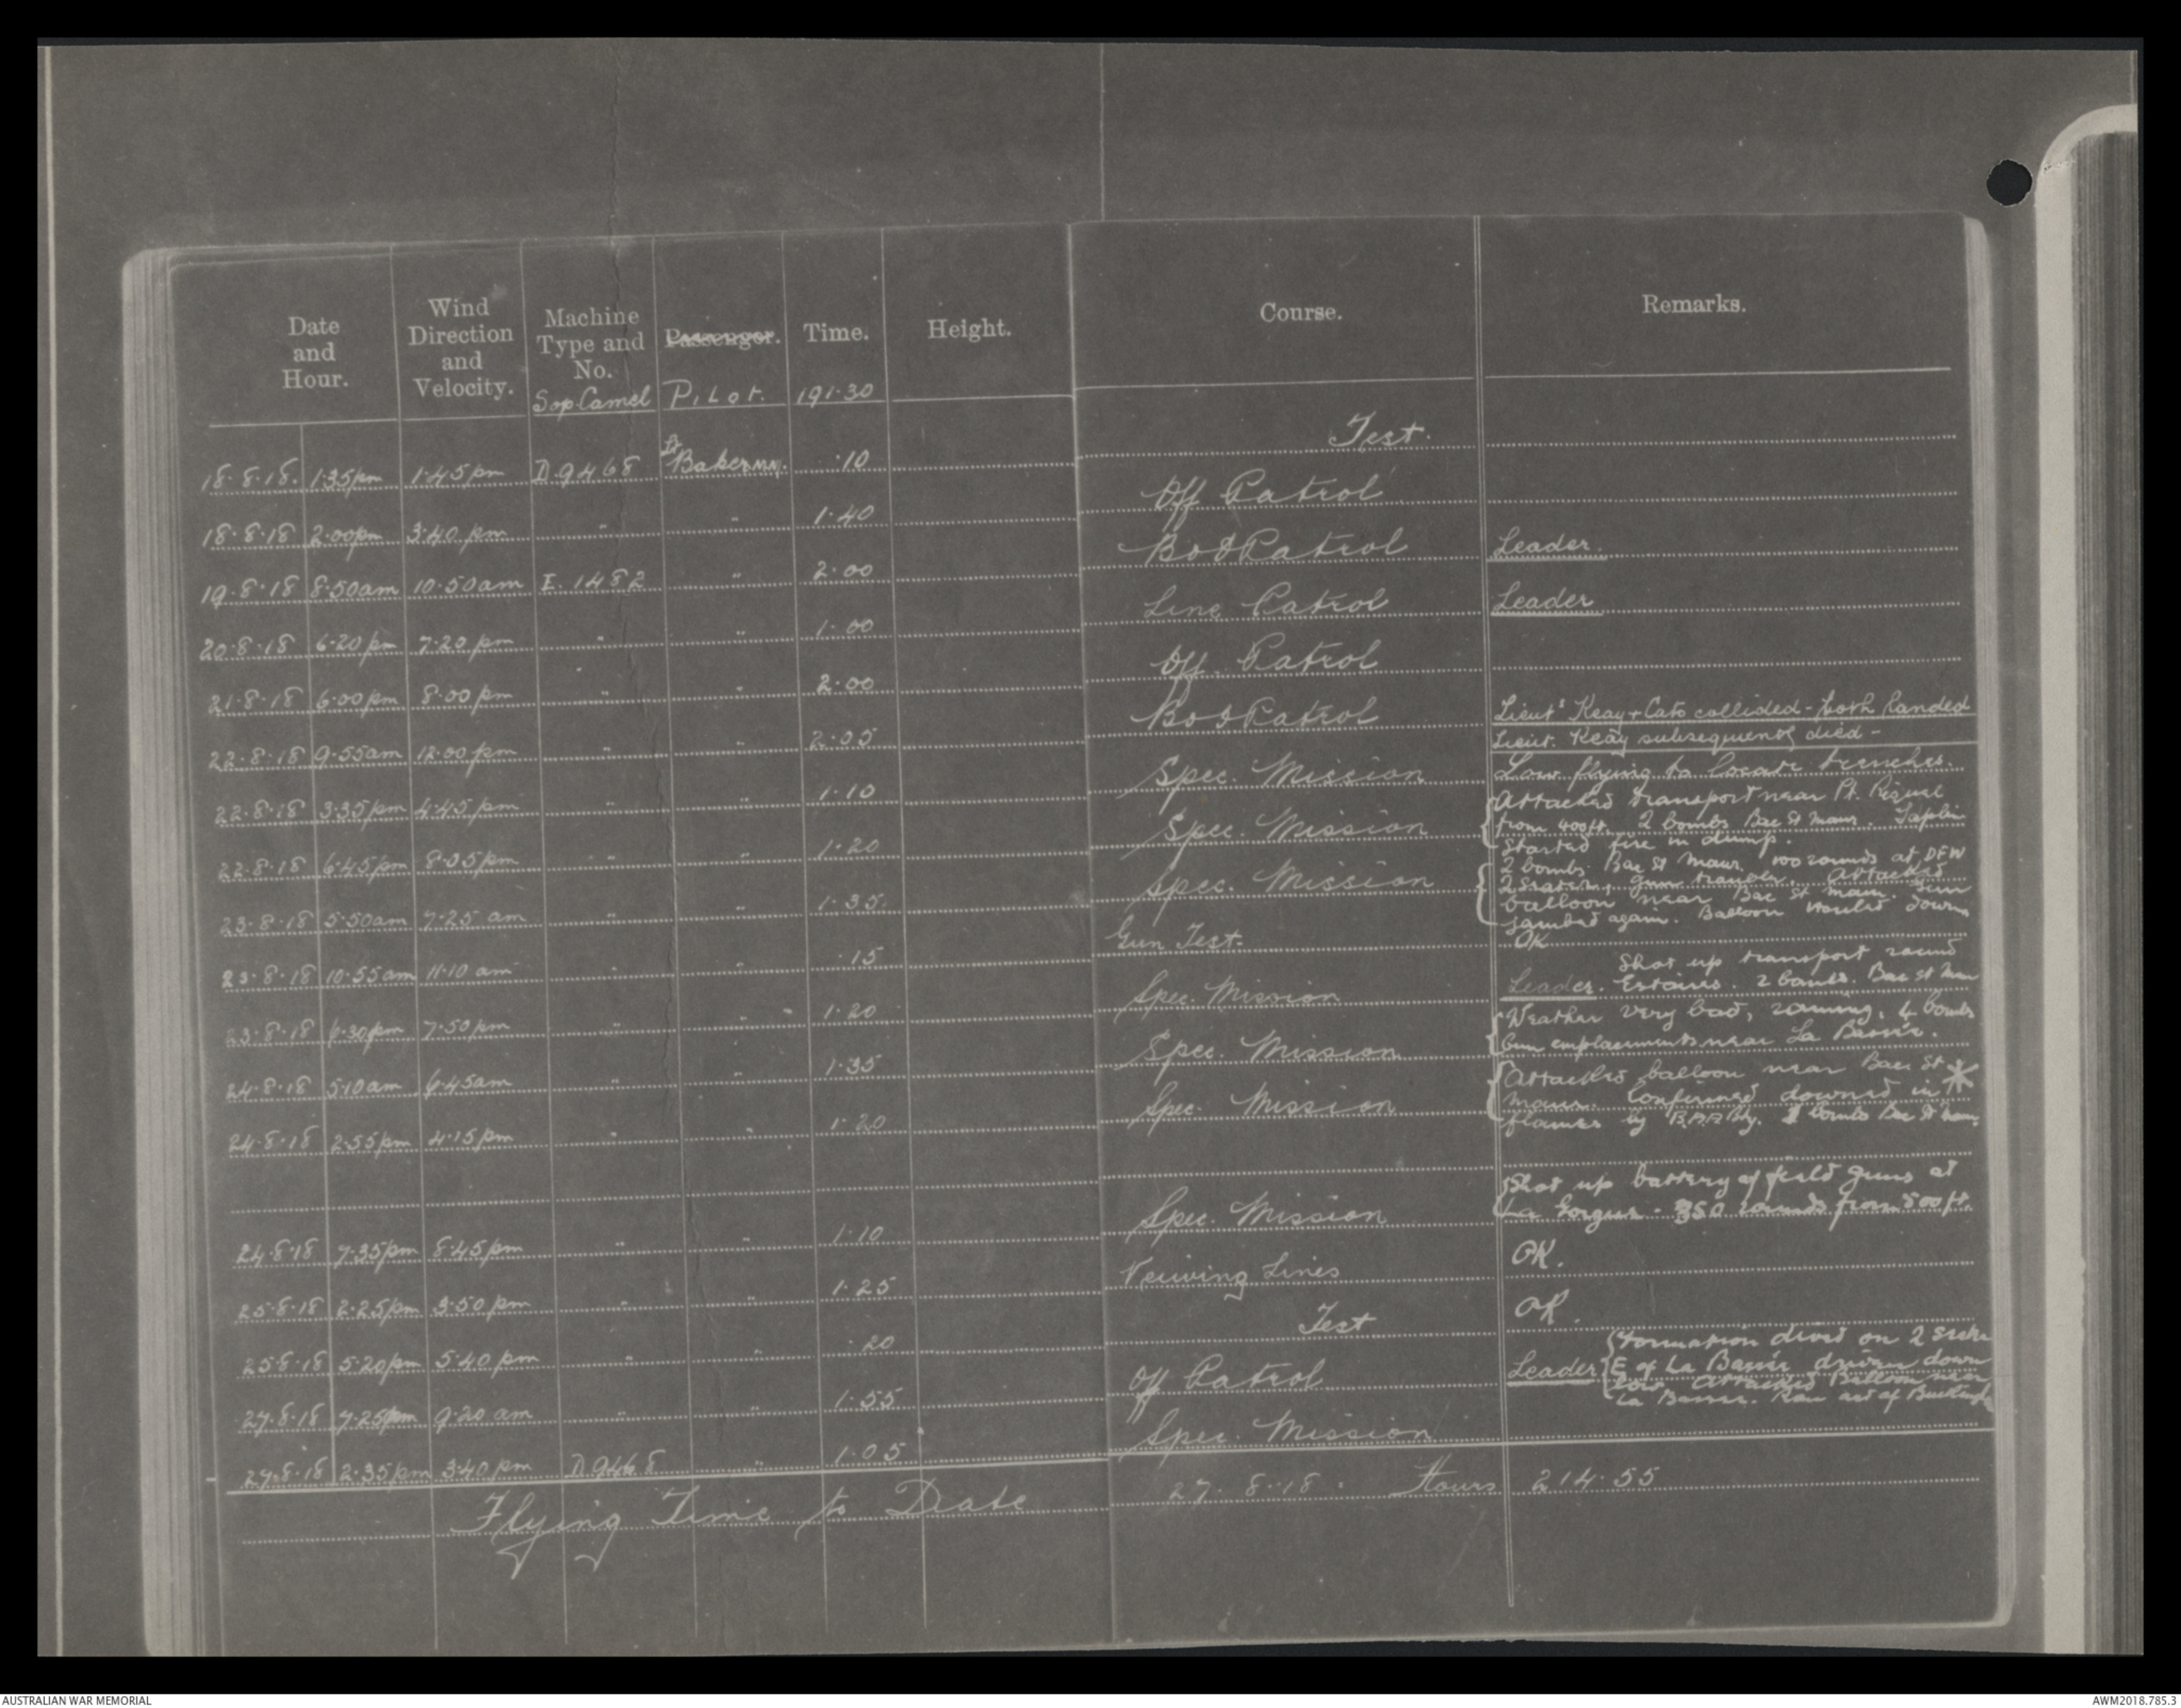 Date and Hour. Wind Direction and Velocity. Machine Type and No. Passenger. Time. Height. Course. Remarks.
Sop Camel Pilot. 191.30
18.8.18. 1.35pm 1.45pm D.9468 Lt Baker .10 Test.
18.8.18 2.00pm 3.40 pm " " 1.40 Off Patrol
19.8.18 8.50am 10.50am E.1482 " 2.00 Patrol Leader.
20.8.18 6.20pm 7.20 pm " " 1.00 Line Patrol Leader
21.8.18 6.00pm 8.00 pm " " 2.00 Off. Patrol
22.8.18 9.55am 12.00 pm " " 2.05 Patrol Lieuts Keay + Cato collided - both landed
Lieut. Keay subsequently died -
22.8.18 3.35pm 4.45 pm " " 1.10 Spec. Mission Low flying to locate trenches.
22.8.18 6.45pm 8.05pm " " 1.20 Spec. Mission Attacked transport near Pt. Riqual
from 400ft. 2 bombs Bac St Maur. Taplin
started fire in dump.
23.8.18 5.50am 7.25 am " " 1.35 Spec. Mission 2 bombs Bac St Maur. 100 rounds at DFW
2 seaters, gun trouble. Attacked
balloon near Bac St Maur. Gun
jambed again. Balloon hauled down
23.8.18 10.55am 11.10 am " " .15 Gun Test. OK
23.8.18 6.30pm 7.50pm " " 1.20 Spec. Mission Leader. Shot up transport round
Estaires. 2 bombs. Bac St Maur
24.8.18 5.10am 6.45am " " 1.35 Spec. Mission Weather very bad, raining, 4 bombs
Gun emplacements near La Bassée.
24.8.18 2.55pm 4.15pm " " 1.20 Spec. Mission Attacked balloon near Bac St *
Maur. Confirmed downed in
flames by Bty. bombs Bac St Maur.
24.8.18 7.35pm 8.45pm " " 1.10 Spec. Mission Shot up battery of field guns at
La Gorgue - 350 rounds from 500ft.
25.8.18 2.25pm 3.50 pm " " 1.25 Veiwing Lines OK.
25.8.18 5.20pm 5.40 pm " " .20 Test OK.
27.8.18 7.25am 9.20 am " " 1.55 Off Patrol Leader Formation dived on 2 seater
E of La Bassée driven down
low. Attacked Balloon near
La Bassée. Ran out of
27.8.18 2.35pm 3.40 pm D.9468 " 1.05 Spec. Mission
Flying Time to Date 27.8.18. Hours 214.55
AUSTRALIAN WAR MEMORIAL
AWM2018.785.3